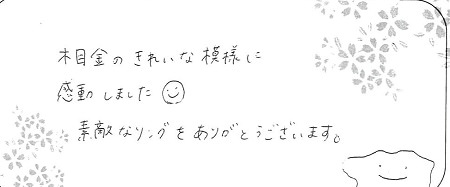 木目金のきれいな模様に
感動しました☺
素敵なリングをありがとうございます。